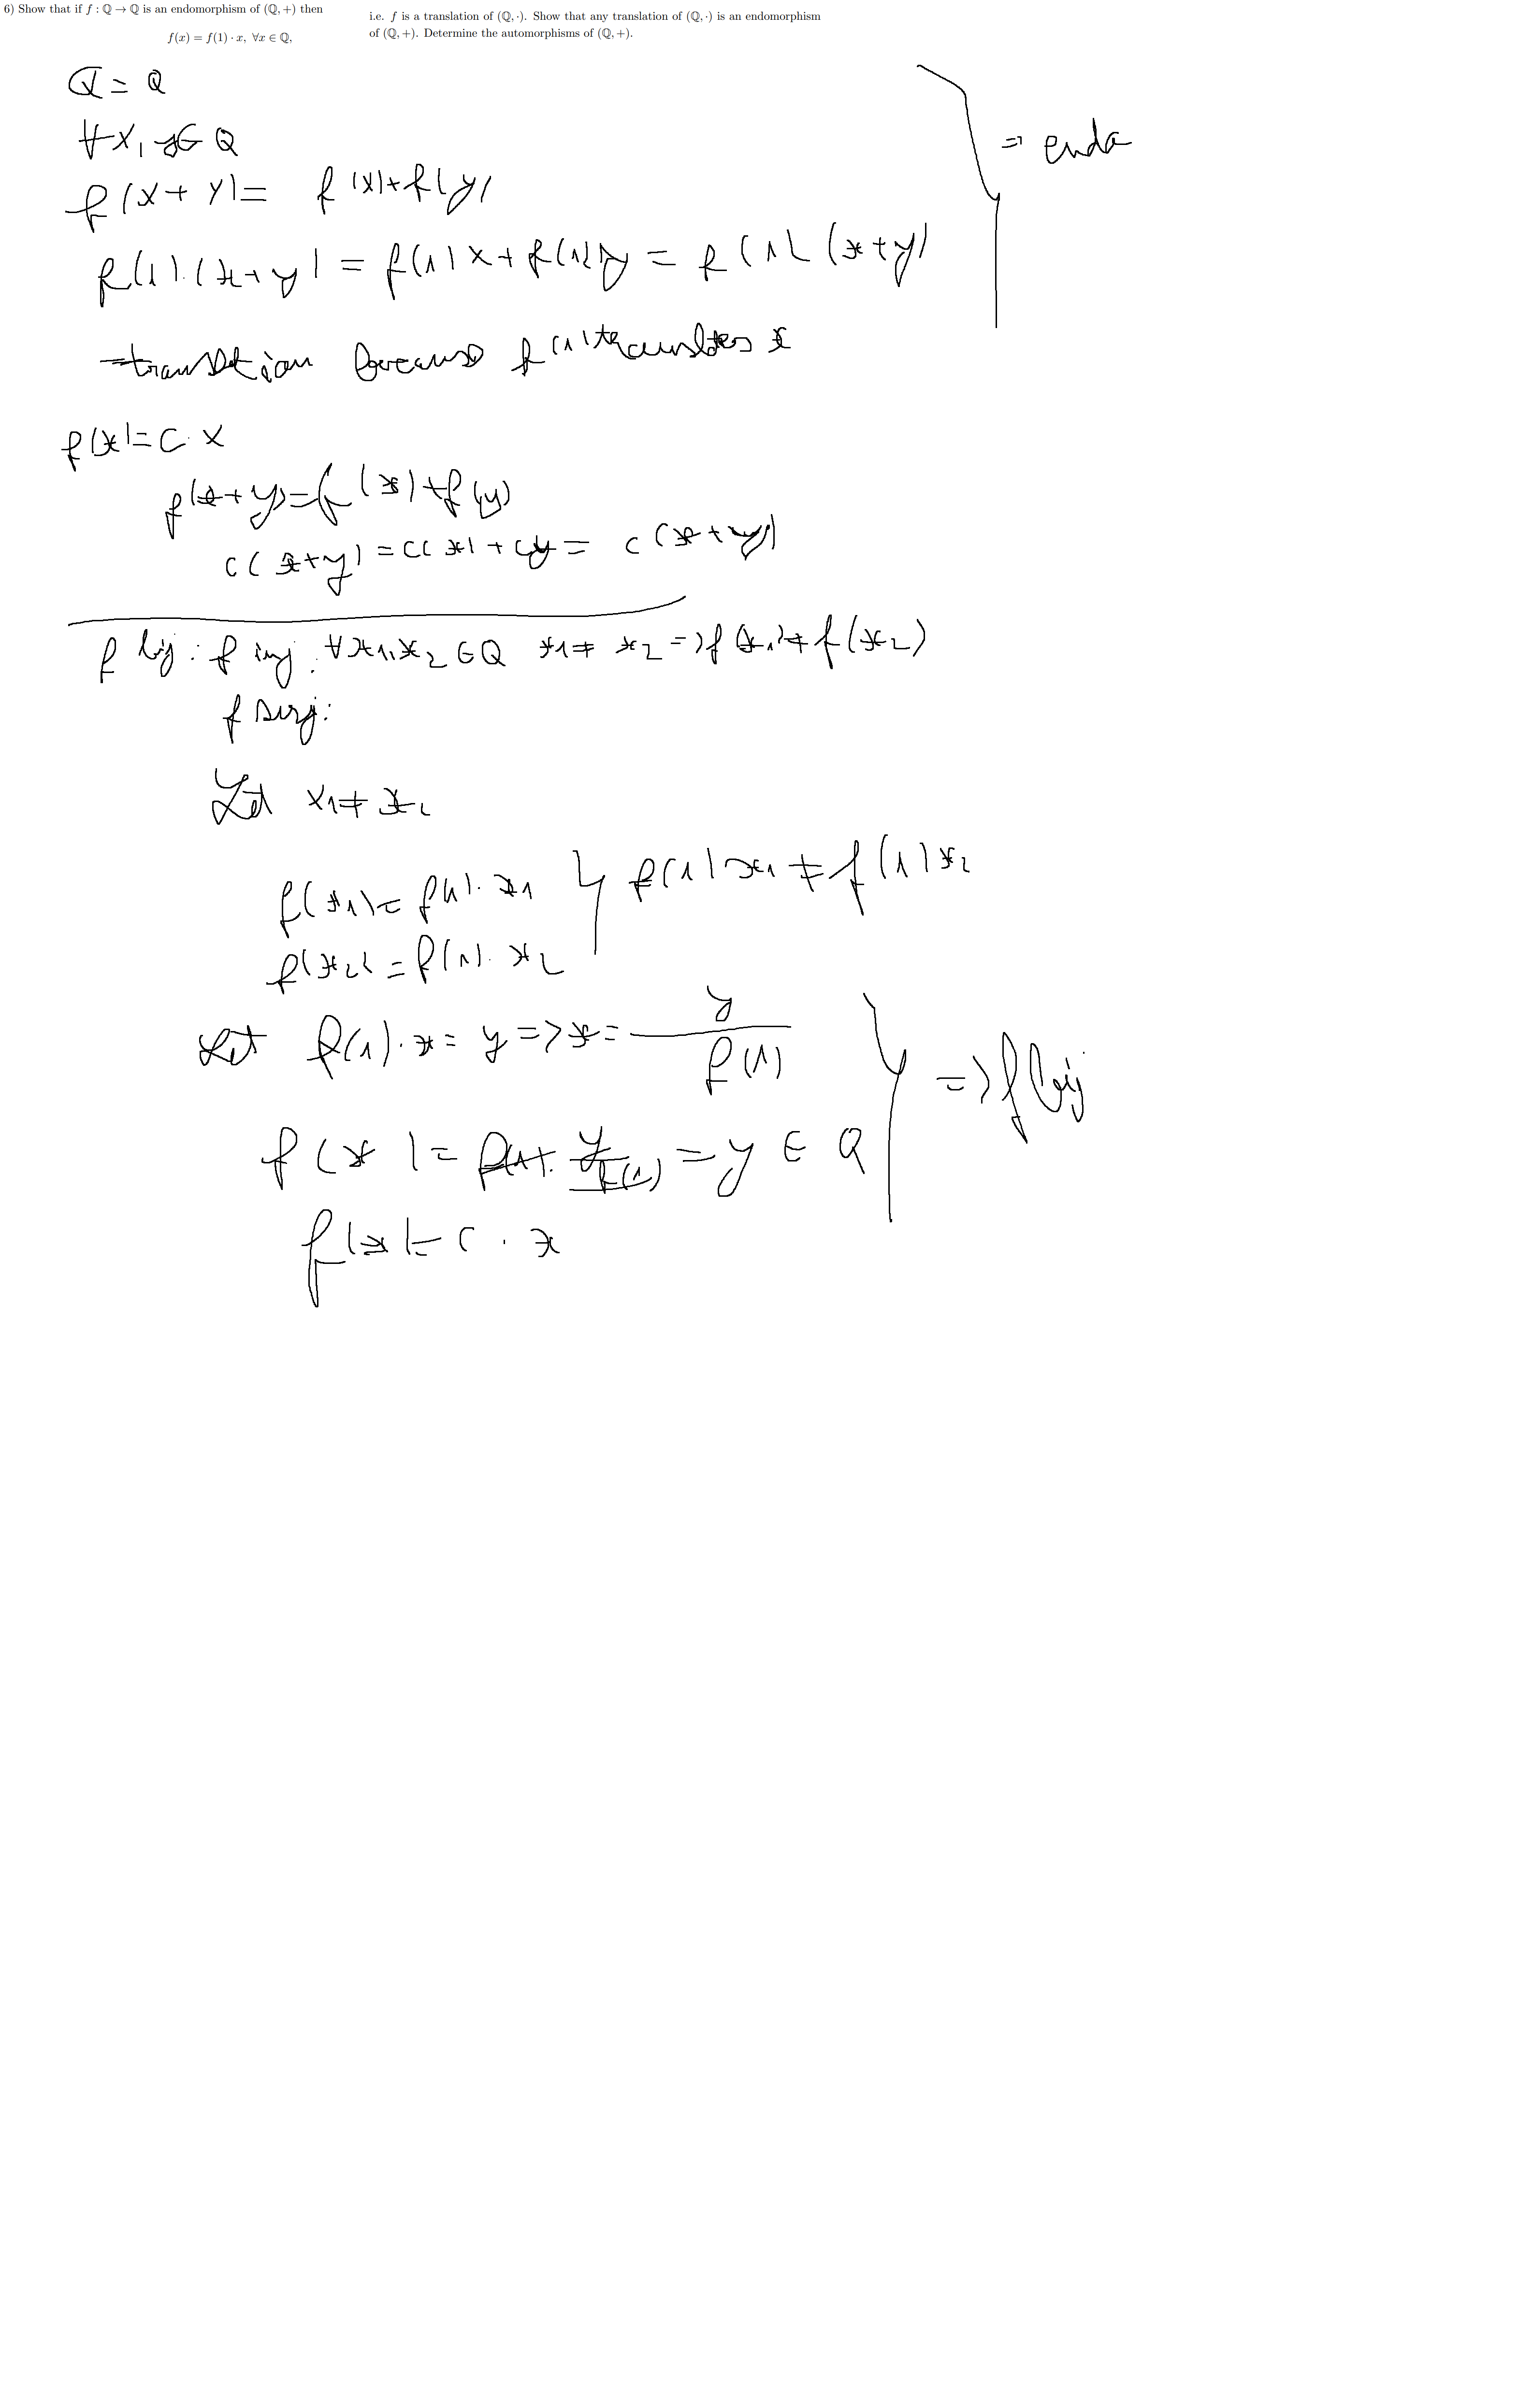 6) Show that if f : ℚ → ℚ is an endomorphism of (ℚ, +) then
f(x) = f(1) · x, ∀x ∈ ℚ,
i.e. f is a translation of (ℚ, ·). Show that any translation of (ℚ, ·) is an endomorphism
of (ℚ, +). Determine the automorphisms of (ℚ, +).
Q = Q
∀x, y ∈ Q
f(x + y) = f(x) + f(y)
=> endo
f(1) · (x + y) = f(1) x + f(1) y = f(1) (x + y)
translation because f(1) translates x
f(x) = c · x
f(x + y) = f(x) + f(y)
c(x + y) = c(x) + cy = c(x + y)
f bij : f inj : ∀x1, x2 ∈ Q x1 ≠ x2 => f(x1) ≠ f(x2)
f surj:
Let x1 ≠ x2
f(x1) = f(1) · x1
f(1) x1 ≠ f(1) x2
f(x2) = f(1) · x2
Let f(1) · x = y => x = y / f(1)
=> f bij
f(x) = f(1) · y / f(1) = y ∈ Q
f(x) = c · x